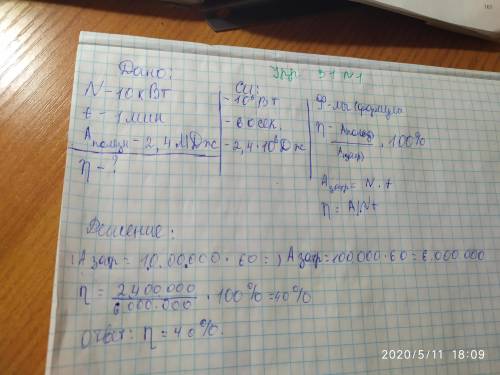 Упр 31 N1
Дано:
N - 10 кВт
t - 1 мин
Aполезн - 2,4 МДж
η - ?
Си:
- 60 сек.
- 2,4·10⁶ Дж
Ф-мы (формулы
η - Aполезн / Aзатр · 100%
Aзатр = N·t
η = A/Nt
Решение:
Aзатр = 10.00.000 · 60 =) Aзатр = 100000·60 = 6.000000
η = 2,400000 / 6.000.000 · 100% = 40%
Ответ: η = 40%.
2020/5/11 18:09